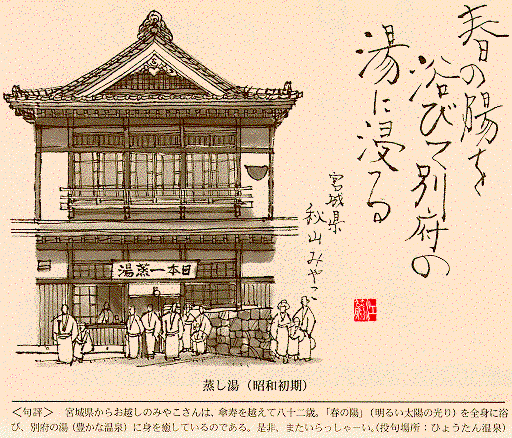 春の陽を
浴びて別府の
湯に浸る
宮城県
秋山みやこ
湯蒸一本日
蒸し湯（昭和初期）
＜句評＞　宮城県からお越しのみやこさんは、傘寿を越えて八十二歳。「春の陽」（明るい太陽の光り）を全身に浴
び、別府の湯（豊かな温泉）に身を癒しているのである。是非、またいらっしゃーい。（投句場所：ひょうたん温泉）